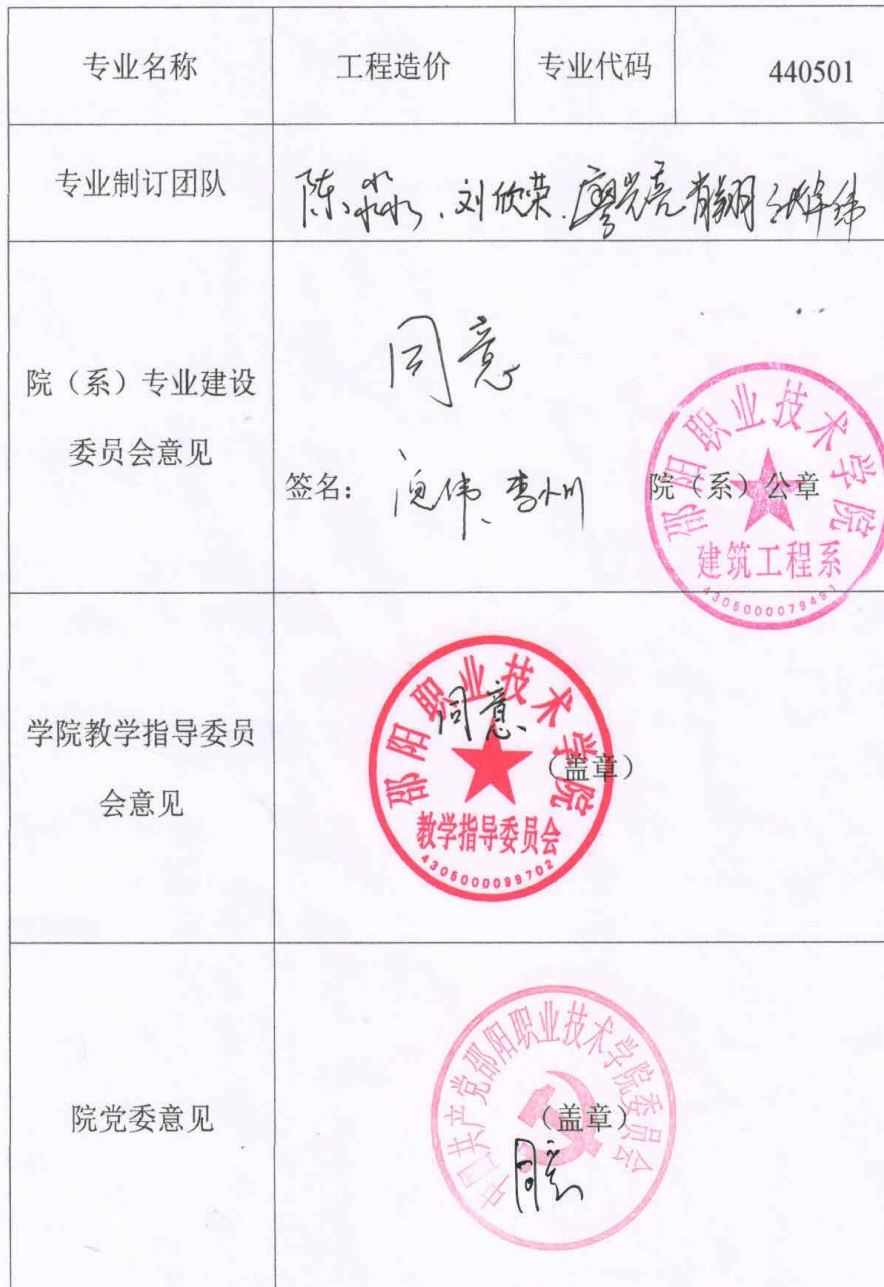 专业名称 工程造价 专业代码 440501
专业制订团队 陈淼、刘欣荣、廖党亮 肖翔
院（系）专业建设
委员会意见
同意
签名： 李小川 院（系）公章
邵阳职业技术学院
建筑工程系
4305000079491
学院教学指导委员
会意见
同意
（盖章）
邵阳职业技术学院
教学指导委员会
4305000099702
院党委意见
中国共产党邵阳职业技术学院委员会
（盖章）
同意